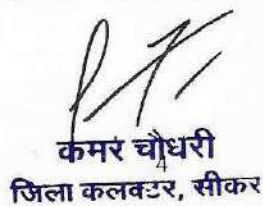 कमर चौधरी
4
जिला कलक्टर, सीकर